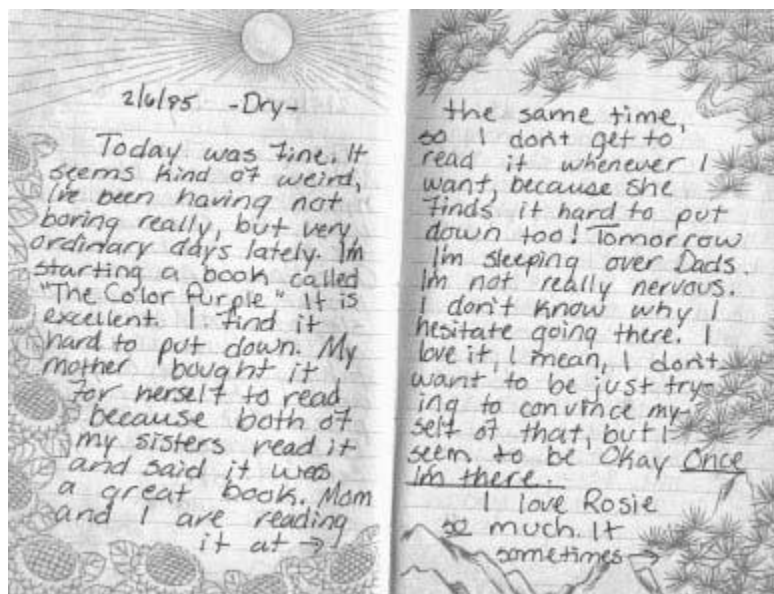 2/6/85 -Dry-
Today was fine. It
seems kind of weird,
I've been having not
boring really, but very
ordinary days lately. I'm
starting a book called
"The Color Purple" It is
excellent. I find it
hard to put down. My
mother bought it
for herself to read
because both of
my sisters read it
and said it was
a great book. Mom
and I are reading
it at →
the same time,
so I don't get to
read it whenever I
want, because she
finds it hard to put
down too! Tomorrow
I'm sleeping over Dads.
I'm not really nervous.
I don't know why I
hesitate going there. I
love it, I mean, I don't
want to be just try-
ing to convince my-
self of that, but I
seem to be Okay Once
I'm there.
I love Rosie
so much. It
sometimes →